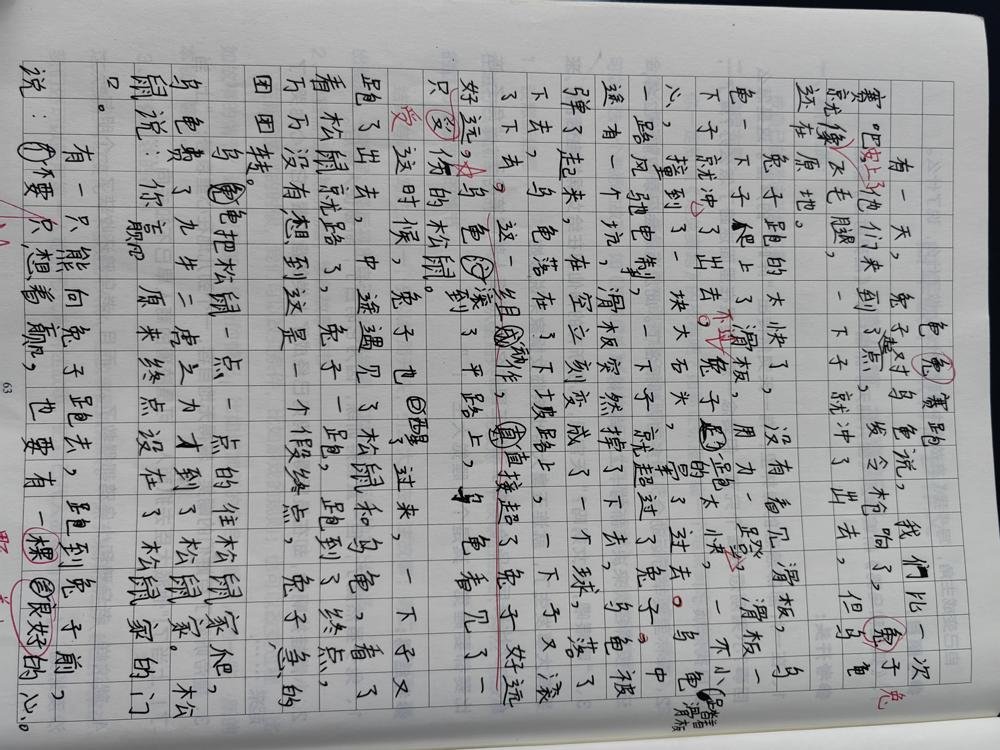 龟兔赛跑
有一天，兔子对乌龟说，我們比一次
赛吧。皮上了他们来到了起点，发令枪响了，兔子 兔
就像飞毛腿，一下子就冲了出去，但乌龟
还在原地。
兔子跑的太快了，没有看见滑板，乌
龟一下子爬上了滑板，用力一蹬，滑板一
下子就冲了出去。不过兔子一跑的太快，一不小 踏着滑板
心，撞到了一块大石头，晕了过去。乌龟
一路风驰电掣，一下子就超过了兔子。中
途有一个坑，滑板突然掉了下去，乌龟被
弹了起来，在空立刻变成了一个球，落了
下去，乌龟落在了下坡路上，一下子又滚
了下去。这一组动作，直接超了兔子好远
好远。乌龟滚到了平路上，乌龟看见了一
只受伤的松鼠。
受 这时候，兔子也醒了过来，一下子又
跑了出去，中途遇见了松鼠和乌龟，看了
看松鼠就路了，兔子一跑，跑到了终点，
万万没有想到这是一个假终点，兔子急的
团团转。
乌龟把松鼠一点一点的往松鼠家爬，
乌龟费了九牛二虎之力才到了松鼠家。松
鼠说：你赢吧 原来终点设在了松鼠家的门
口。
有一只熊向兔子跑去，跑到兔子前，
说：不要只想着赢，也要有一棵良好的心。
63